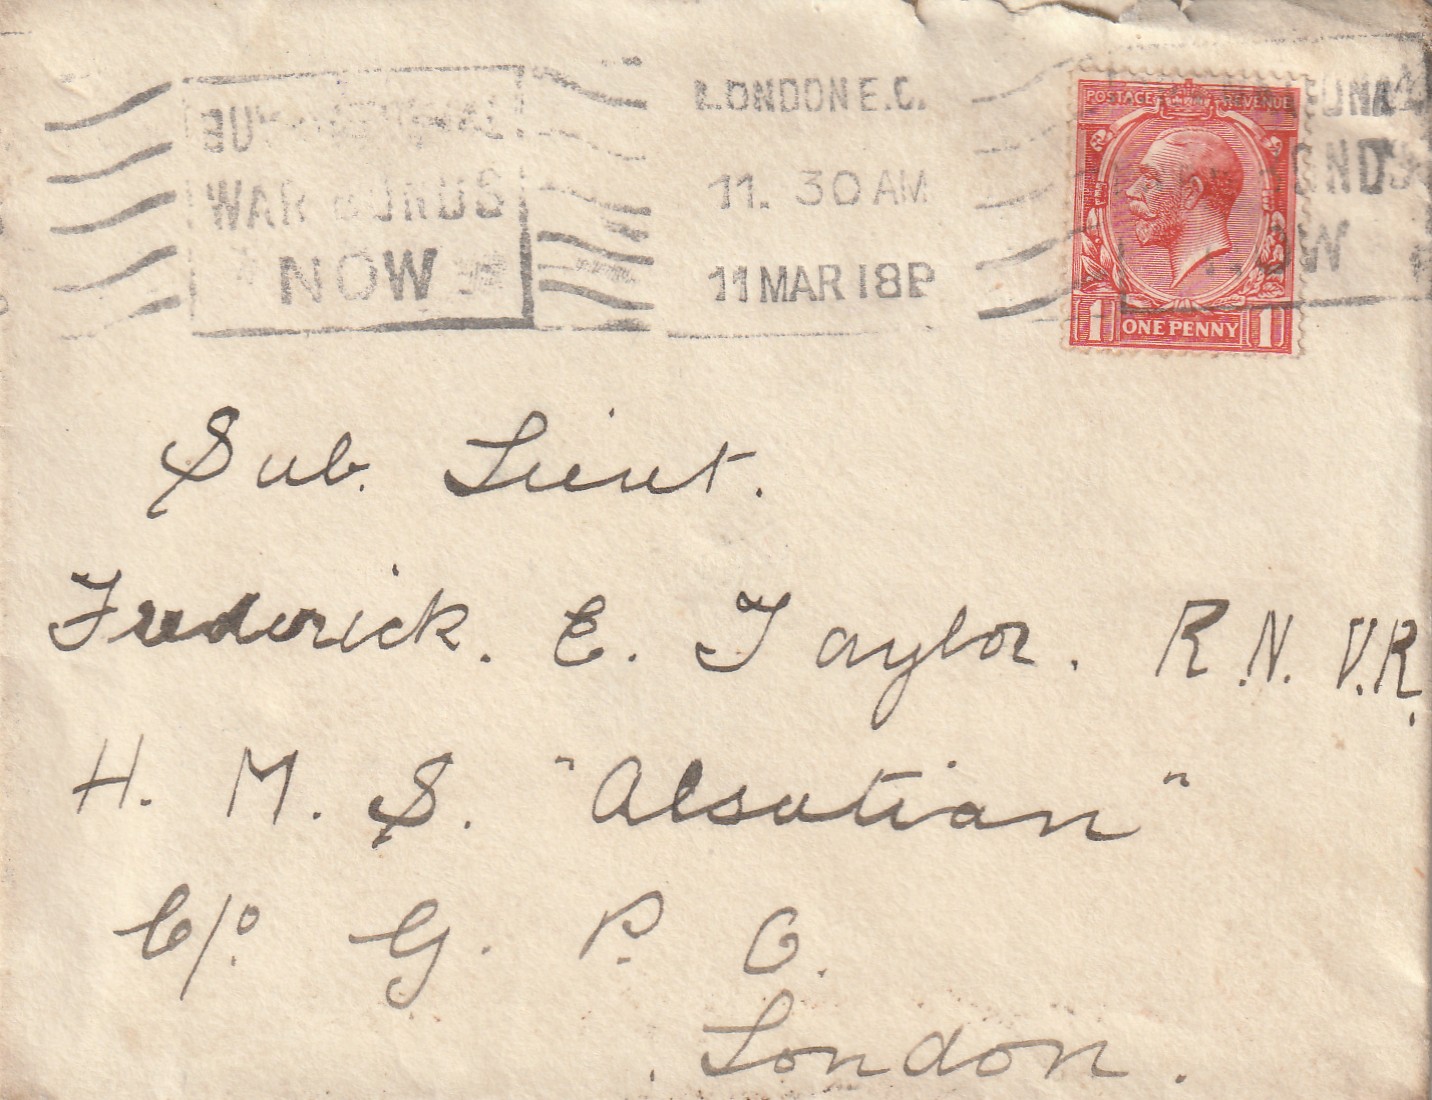 BUY NATIONAL
WAR BONDS
NOW
LONDON E.C.
11. 30 AM
11 MAR 18 B
NATIONAL
WAR BONDS
NOW
POSTAGE REVENUE
1 ONE PENNY 1
Sub. Lieut.
Frederick. E. Taylor. R.N.V.R.
H. M. S. "Alsatian"
C/o. G. P. O.
London.